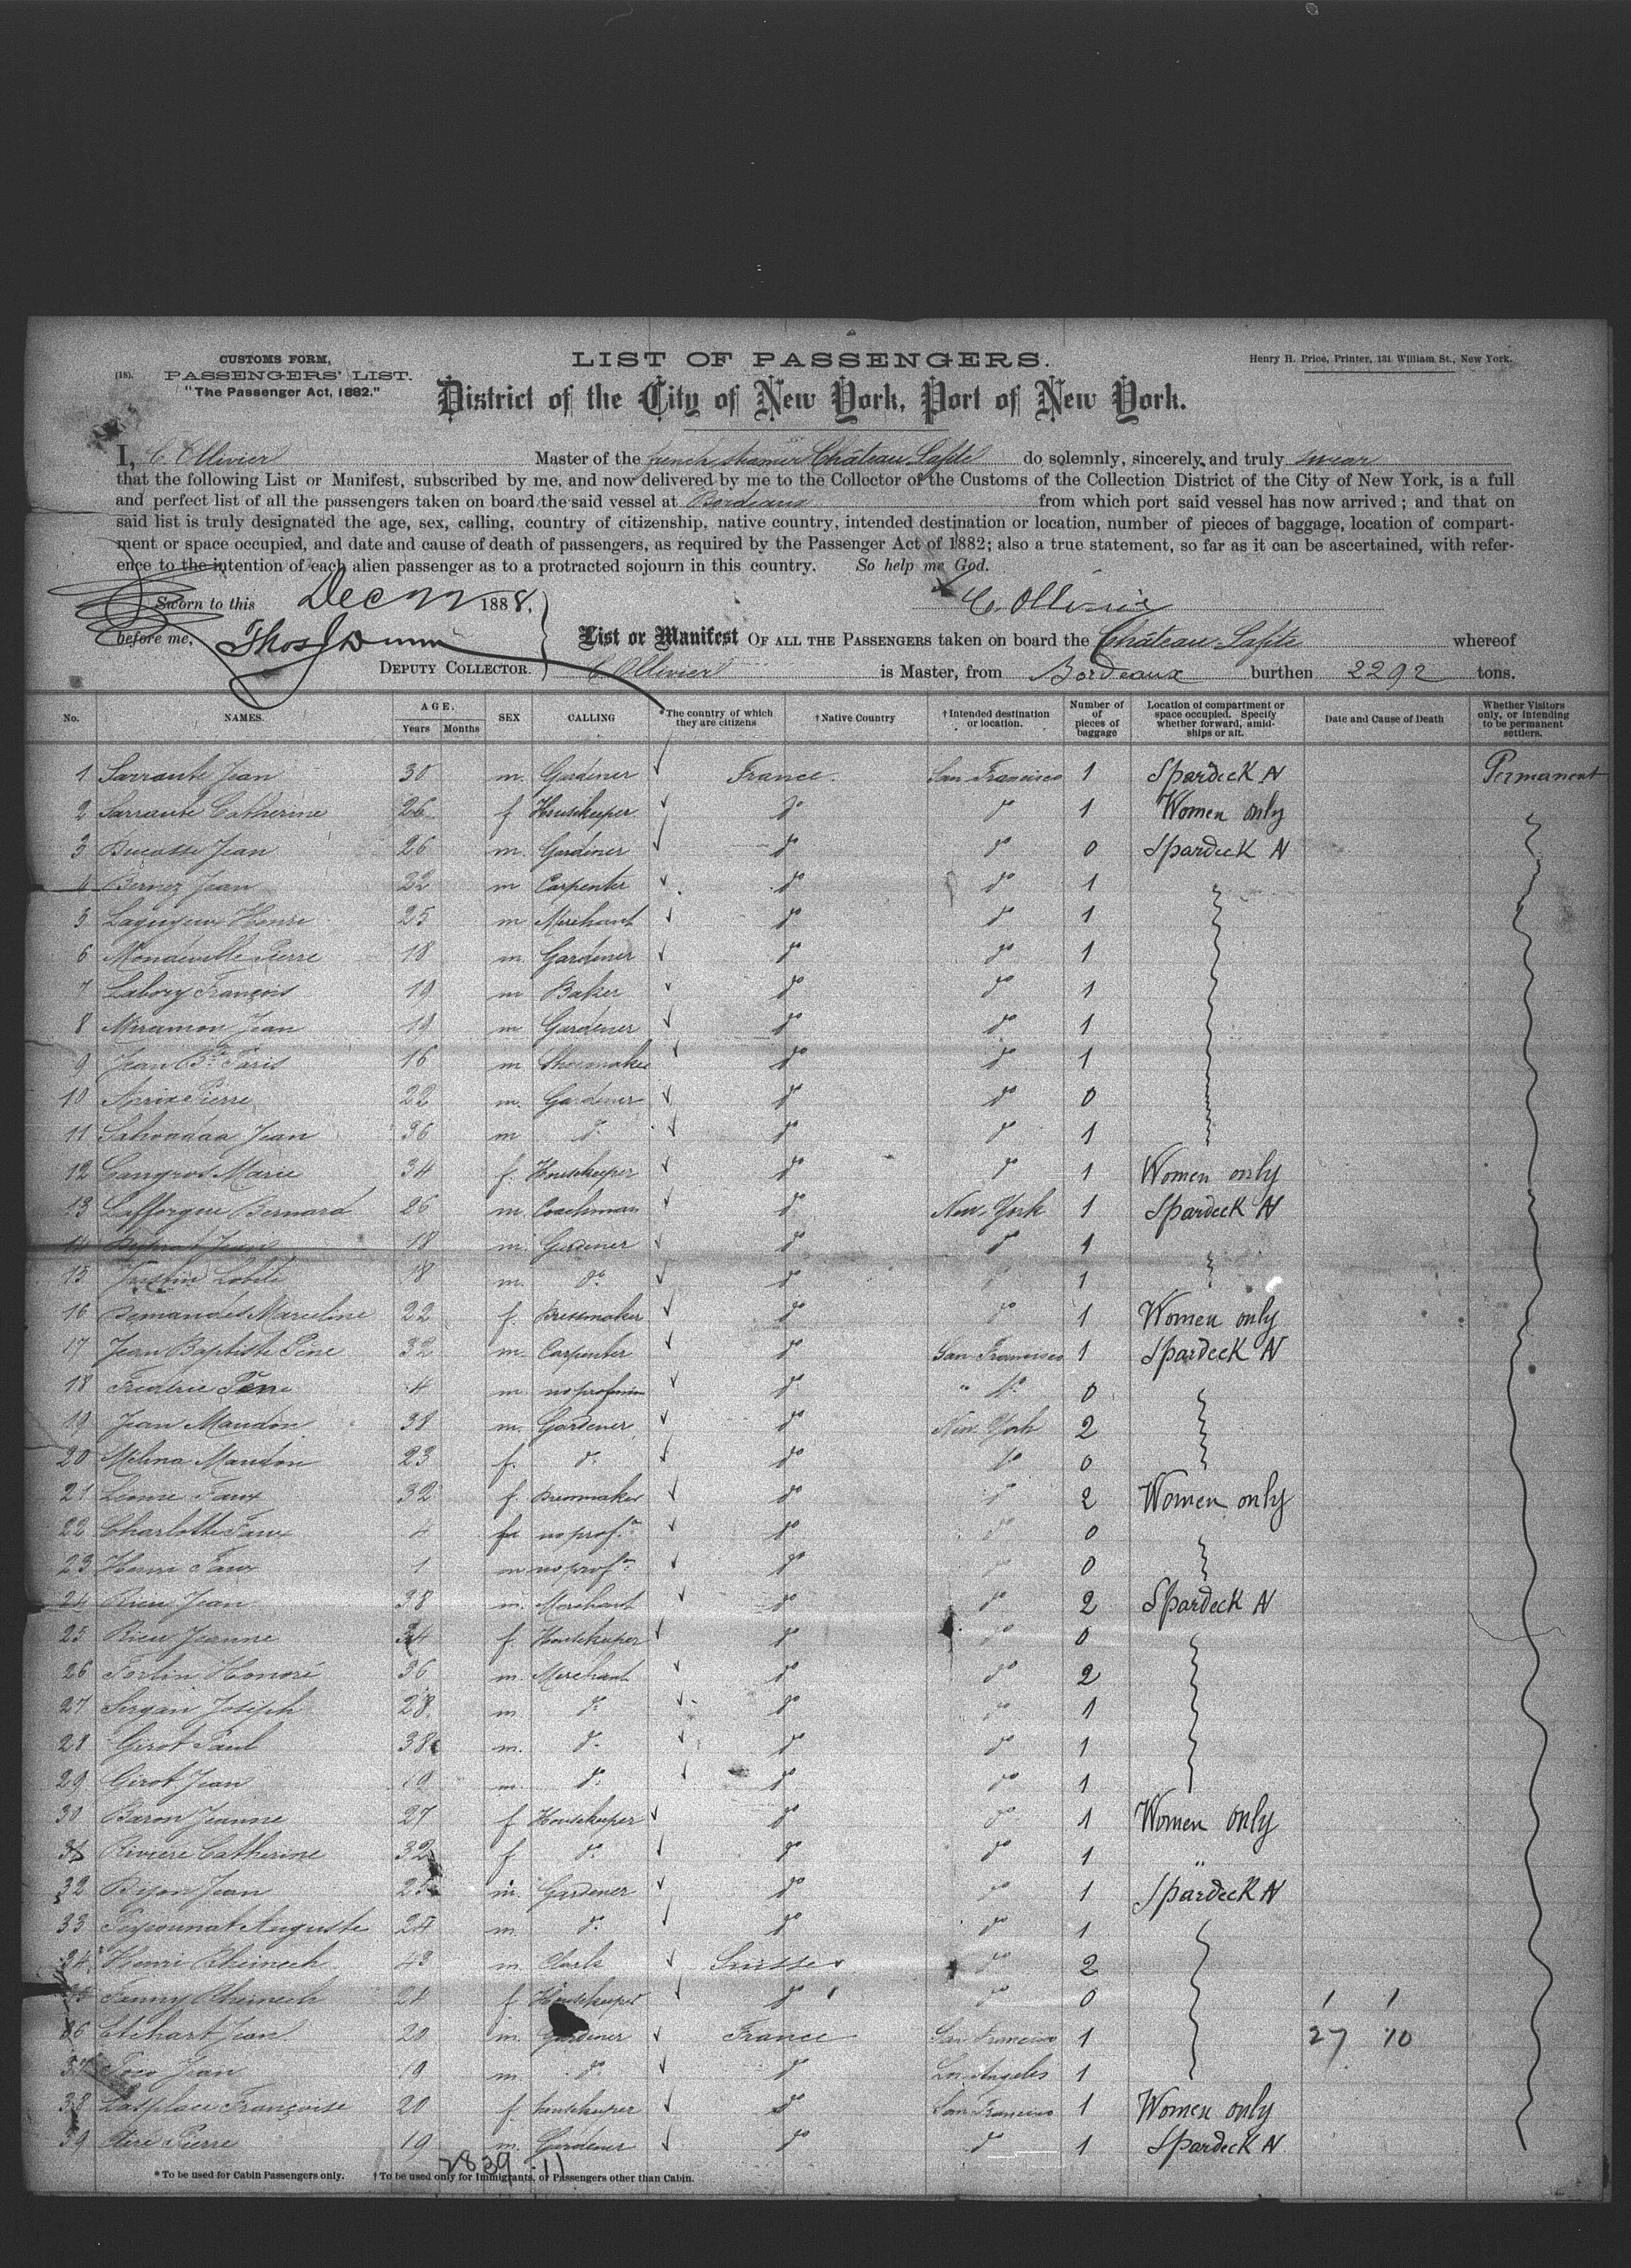 CUSTOMS FORM,
(18). PASSENGERS' LIST.
"The Passenger Act, 1882."
LIST OF PASSENGERS.
Henry H. Price, Printer, 131 William St., New York.
District of the City of New York, Port of New York.
I, C. Ollivier Master of the french steamer Château Lafite do solemnly, sincerely and truly swear
that the following List or Manifest, subscribed by me, and now delivered by me to the Collector of the Customs of the Collection District of the City of New York, is a full
and perfect list of all the passengers taken on board the said vessel at Bordeaux from which port said vessel has now arrived; and that on
said list is truly designated the age, sex, calling, country of citizenship, native country, intended destination or location, number of pieces of baggage, location of compart-
ment or space occupied, and date and cause of death of passengers, as required by the Passenger Act of 1882; also a true statement, so far as it can be ascertained, with refer-
ence to the intention of each alien passenger as to a protracted sojourn in this country. So help me God.
Sworn to this Dec 22 1888, C. Ollivier
before me, Thos J Dunn List or Manifest OF ALL THE PASSENGERS taken on board the Château Lafite whereof
DEPUTY COLLECTOR. C. Ollivier is Master, from Bordeaux burthen 2292 tons.
No. NAMES. AGE. Years Months SEX CALLING *The country of which they are citizens †Native Country †Intended destination or location. Number of of pieces of baggage Location of compartment or space occupied. Specify whether forward, amid-ships or aft. Date and Cause of Death Whether Visitors only, or intending to be permanent settlers.
1 Sarraute Jean 30 m. Gardener France. San Francisco 1 Spardeck N Permanent
2 Sarraute Catherine 26 f Housekeeper do do 1 Women only
3 Ducasse Jean 26 m. Gardener do do 0 Spardeck N
4 Bernez Jean 22 m Carpenter do do 1
5 Henri 25 m Merchant do do 1
6 Mondeville Pierre 18 m. Gardener do do 1
7 Labory François 19 m Baker do do 1
8 Miramon Jean 19 m Gardener do do 1
9 Jean Bte Paris 16 m Shoemaker do do 1
10 Pierre 22 m. Gardener do do 0
11 Jean 36 m do do do 1
12 Cangros Marie 34 f. Housekeeper do do 1 Women only
13 Lafforgue Bernard 26 m. Coachman do New-York 1 Spardeck N
14 Jean 18 m. Gardener do do 1
15 18 m. do do do 1
16 Marceline 22 f. Dressmaker do do 1 Women only
17 Jean Baptiste Pène 32 m. Carpenter do San Francisco 1 Spardeck N
18 Frederic Pène 4 m no profession do " do 0
19 Jean Maudon 38 m. Gardener do New York 2
20 Melina Maudon 23 f. do do do 0
21 Leonie Faux 32 f. Dressmaker do do 2 Women only
22 Charlotte Faux 4 f no profon do do 0
23 Henri Faux 1 m no profon do do 0
24 Rieu Jean 38 m. Merchant do do 2 Spardeck N
25 Rieu Jeanne 34 f. Housekeeper do do 0
26 Fortin Honoré 36 m. Merchant do do 2
27 Joseph 28 m do do do 1
28 Girot Paul 38 m. do do do 1
29 Girot Jean 19 m. do do do 1
30 Baron Jeanne 27 f Housekeeper do do 1 Women only
31 Riviere Catherine 32 f do do do 1 "
32 Jean 25 m. Gardener do do 1 Spardeck N
33 Auguste 24 m. do do do 1
34 Henri Rhinech 43 m. Clerk Suisse do 2
35 Fanny Rhinech 24 f Housekeeper do do 0 1 1
36 Etchart Jean 20 m. Gardener France San Francisco 1 27 10
37 Jean 19 m. do do Los Angeles 1
38 Lasplace Françoise 20 f. housekeeper do San Francisco 1 Women only
39 Pierre 19 m. Gardener do do 1 Spardeck N
2839 11
* To be used for Cabin Passengers only. † To be used only for Immigrants, or Passengers other than Cabin.